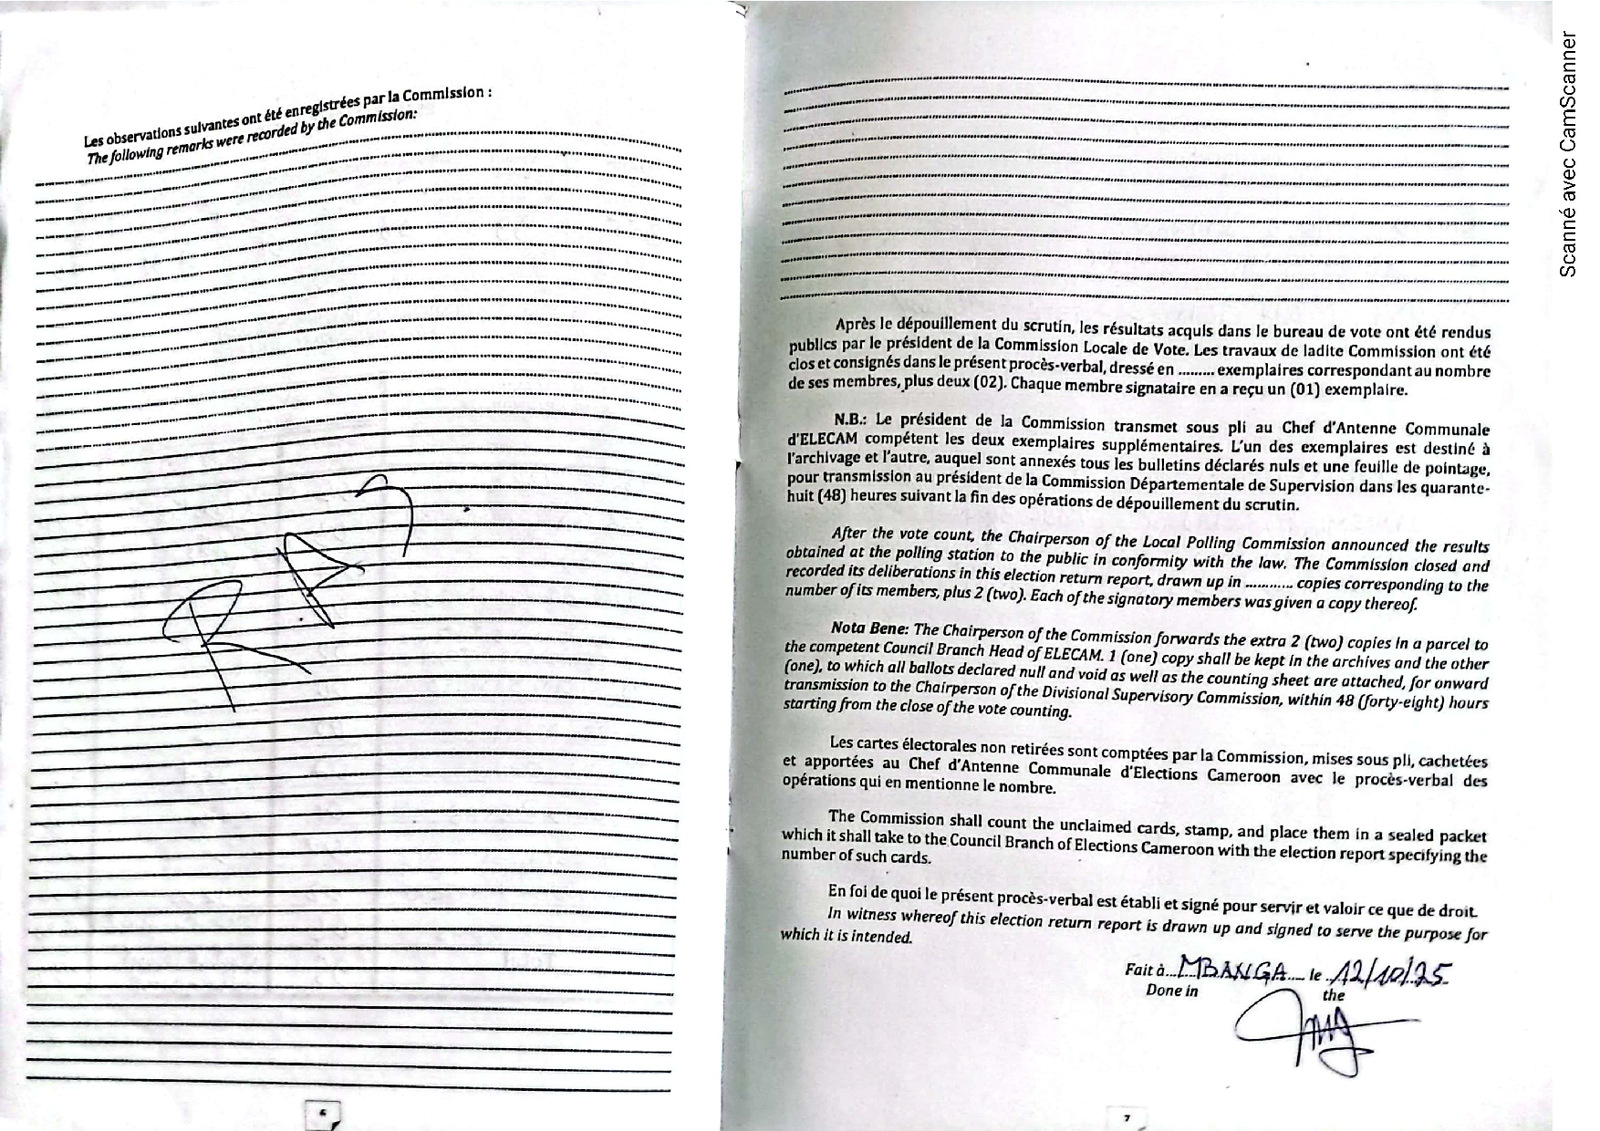 Les observations suivantes ont été enregistrées par la Commission :
The following remarks were recorded by the Commission:
R A S
6
Après le dépouillement du scrutin, les résultats acquis dans le bureau de vote ont été rendus
publics par le président de la Commission Locale de Vote. Les travaux de ladite Commission ont été
clos et consignés dans le présent procès-verbal, dressé en ......... exemplaires correspondant au nombre
de ses membres, plus deux (02). Chaque membre signataire en a reçu un (01) exemplaire.
N.B.: Le président de la Commission transmet sous pli au Chef d'Antenne Communale
d'ELECAM compétent les deux exemplaires supplémentaires. L'un des exemplaires est destiné à
l'archivage et l'autre, auquel sont annexés tous les bulletins déclarés nuls et une feuille de pointage,
pour transmission au président de la Commission Départementale de Supervision dans les quarante-
huit (48) heures suivant la fin des opérations de dépouillement du scrutin.
After the vote count, the Chairperson of the Local Polling Commission announced the results
obtained at the polling station to the public in conformity with the law. The Commission closed and
recorded its deliberations in this election return report, drawn up in ............ copies corresponding to the
number of its members, plus 2 (two). Each of the signatory members was given a copy thereof.
Nota Bene: The Chairperson of the Commission forwards the extra 2 (two) copies in a parcel to
the competent Council Branch Head of ELECAM. 1 (one) copy shall be kept in the archives and the other
(one), to which all ballots declared null and void as well as the counting sheet are attached, for onward
transmission to the Chairperson of the Divisional Supervisory Commission, within 48 (forty-eight) hours
starting from the close of the vote counting.
Les cartes électorales non retirées sont comptées par la Commission, mises sous pli, cachetées
et apportées au Chef d'Antenne Communale d'Elections Cameroon avec le procès-verbal des
opérations qui en mentionne le nombre.
The Commission shall count the unclaimed cards, stamp, and place them in a sealed packet
which it shall take to the Council Branch of Elections Cameroon with the election report specifying the
number of such cards.
En foi de quoi le présent procès-verbal est établi et signé pour servir et valoir ce que de droit.
In witness whereof this election return report is drawn up and signed to serve the purpose for
which it is intended.
Fait à MBANGA le 12/10/25
Done in the
7
Scanné avec CamScanner